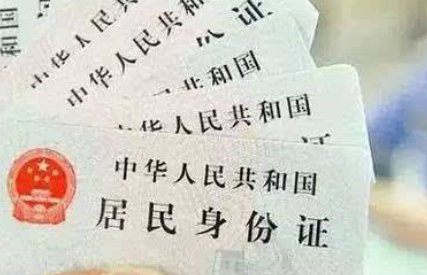 和国
份证
中华人民
份证
中华人民共
中华人民共和国
华人民共和国
中华人民共和国
居民身份证